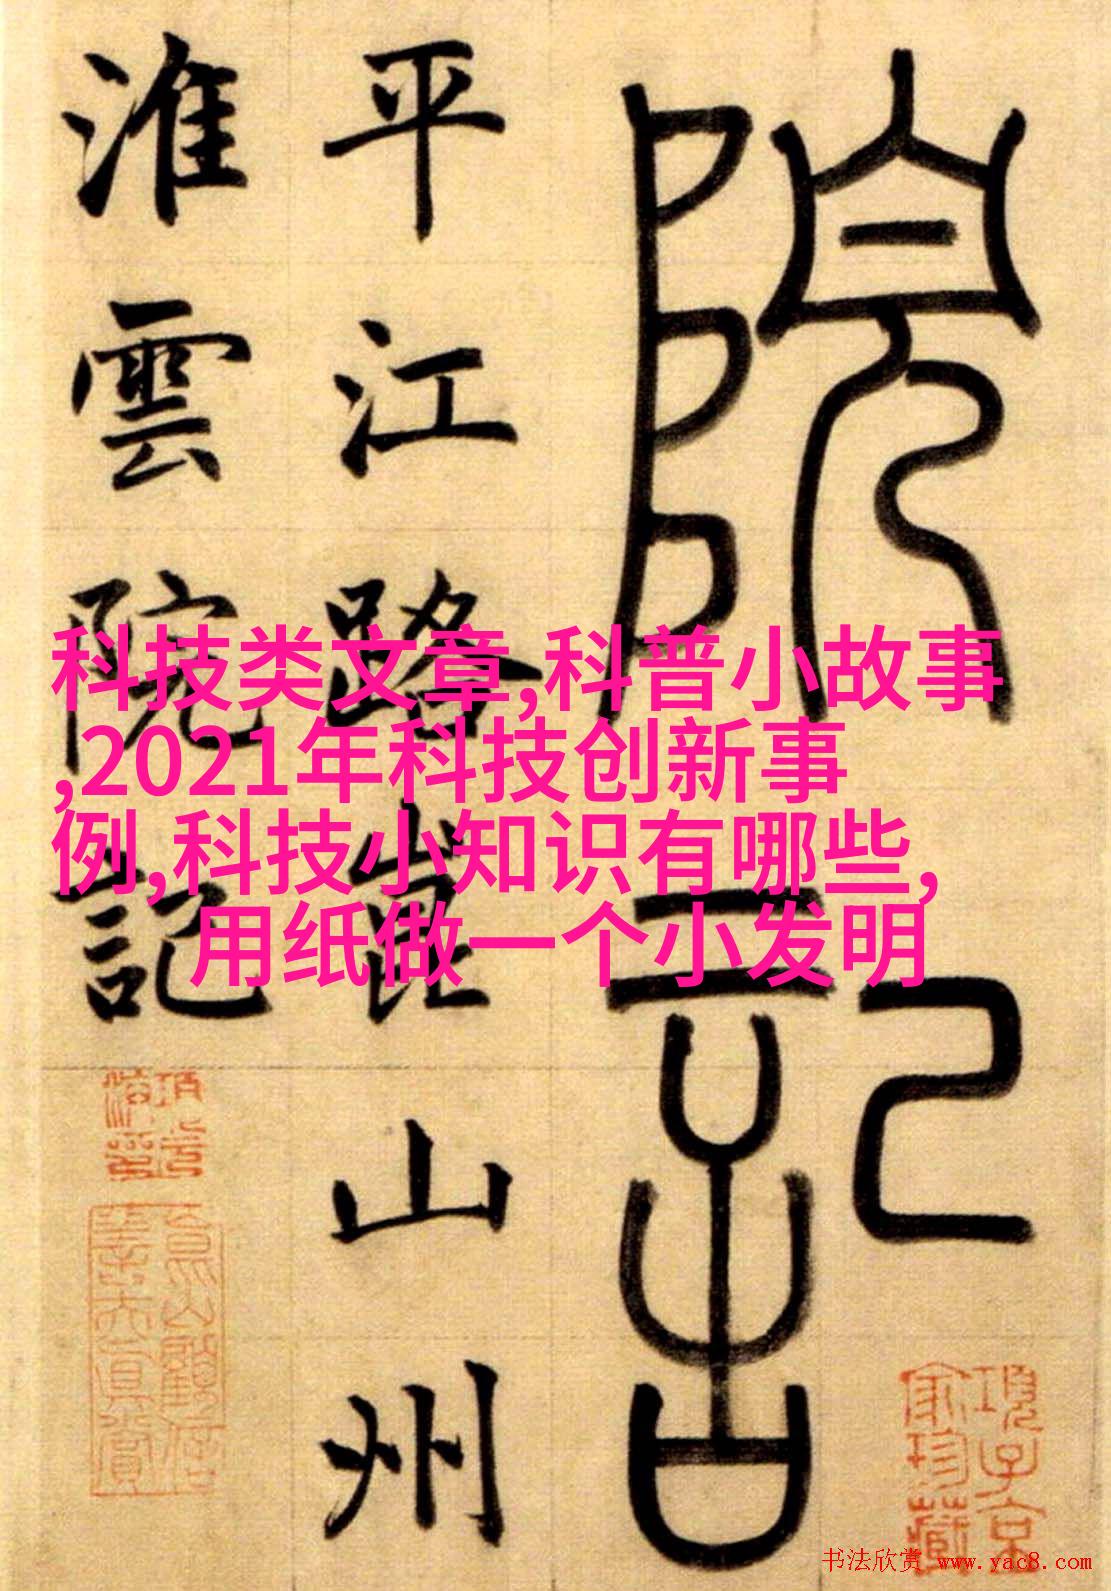 院記
平江路崑山州
淮雲院記
科技类文章,科普小故事
,2021年科技创新事
例,科技小知识有哪些,
用纸做一个小发明
項子京
家珍藏
书法欣赏 www.yac8.com